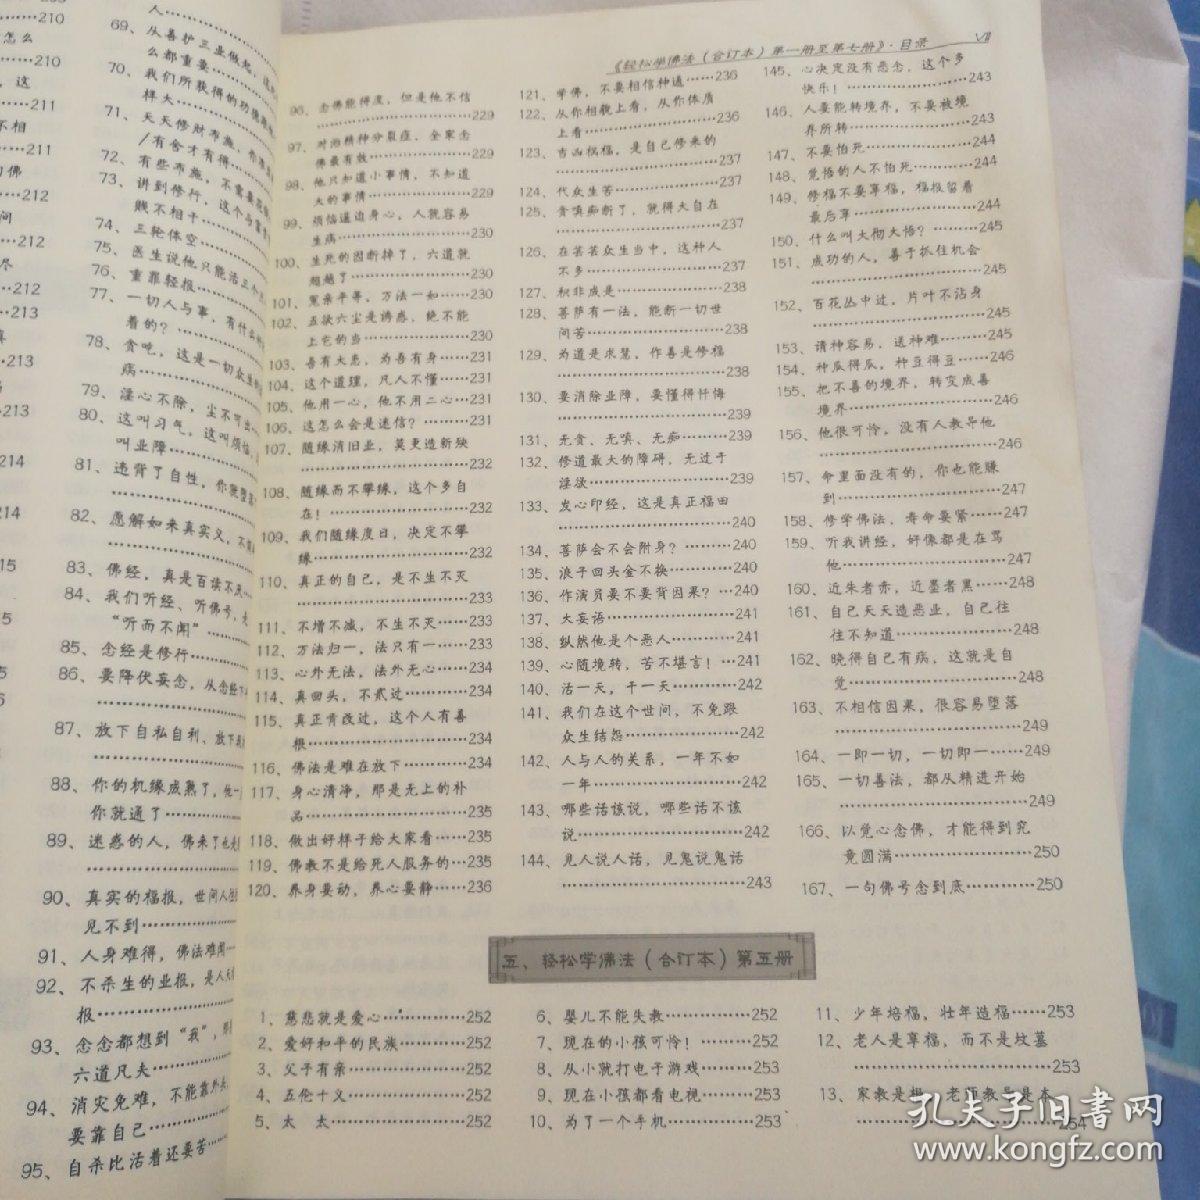 210
怎么
210
这
211
不相
211
的佛
212
问
212
尽
212
213
真
213
213
214
214
215
人
69、从善护三业做起,这
么都重要
70、我们所获得的功德
样大
71、天天修财布施,你
/有舍才有得
72、有些布施,不需要花
73、讲到修行,这个与富
贱不相干
74、三轮体空
75、医生说他只能活三个
76、重罪轻报
77、一切人与事,有什么
着的?
78、贪吃,这是一切众生
病
79、淫心不除,尘不可出
80、这叫习气,这叫烦恼
叫业障
81、违背了自性,你就堕
82、愿解如来真实义,不
83、佛经,真是百读不厌
84、我们听经、听佛号,
“听而不闻”
85、念经是修行
86、要降伏妄念,从念经
87、放下自私自利、放下
88、你的机缘成熟了,他一
你就通了
89、迷惑的人,佛来了也
90、真实的福报,世间人
见不到
91、人身难得,佛法难闻
92、不杀生的业报,是人
报
93、念念都想到“我”,
六道凡夫
94、消灾免难,不能靠外
要靠自己
95、自杀比活着还要苦
《轻松学佛法(合订本)第一册至第七册》·目录 VII
96、念佛能得度,但是他不信
……229
97、对治精神分裂症、全家念
佛最有效……229
98、他只知道小事情,不知道
大的事情……229
99、烦恼逼迫身心,人就容易
生病……230
100、生死的因断掉了,六道就
超越了……230
101、冤亲平等,万法一如……230
102、五欲六尘是诱惑,绝不能
上它的当……230
103、吾有大患,为吾有身……231
104、这个道理,凡人不懂……231
105、他用一心,他不用二心……231
106、这怎么会是迷信?……231
107、随缘消旧业,莫更造新殃
……232
108、随缘而不攀缘,这个多自
在!……232
109、我们随缘度日,决定不攀
缘……232
110、真正的自己,是不生不灭
……233
111、不增不减,不生不灭……233
112、万法归一,法只有一……233
113、心外无法,法外无心……234
114、真回头,不贰过……234
115、真正肯改过,这个人有善
根……234
116、佛法是难在放下……234
117、身心清净,那是无上的补
品……235
118、做出好样子给大家看……235
119、佛教不是给死人服务的…235
120、养身要动,养心要静……236
121、学佛,不要相信神通……236
122、从你相貌上看,从你体质
上看……236
123、吉凶祸福,是自己修来的
……237
124、代众生苦……237
125、贪嗔痴断了,就得大自在
……237
126、在芸芸众生当中,这种人
不多……237
127、积非成是……238
128、菩萨有一法,能断一切世
间苦……238
129、为道是求慧,作善是修福
……238
130、要消除业障,要懂得忏悔
……239
131、无贪、无嗔、无痴……239
132、修道最大的障碍,无过于
淫欲……239
133、发心印经,这是真正福田
……240
134、菩萨会不会附身?……240
135、浪子回头金不换……240
136、作演员要不要背因果?…240
137、大妄语……241
138、纵然他是个恶人……241
139、心随境转,苦不堪言!…241
140、活一天,干一天……242
141、我们在这个世间,不免跟
众生结怨……242
142、人与人的关系,一年不如
一年……242
143、哪些话该说,哪些话不该
说……242
144、见人说人话,见鬼说鬼话
……243
145、心决定没有恶念,这个多
快乐!……243
146、人要能转境界,不要被境
界所转……243
147、不要怕死……244
148、觉悟的人不怕死……244
149、修福不要享福,福报留着
最后享……244
150、什么叫大彻大悟?……245
151、成功的人,善于抓住机会
……245
152、百花丛中过,片叶不沾身
……245
153、请神容易,送神难……245
154、种瓜得瓜,种豆得豆……246
155、把不善的境界,转变成善
境界……246
156、他很可怜,没有人教导他
……246
157、命里面没有的,你也能赚
到……247
158、修学佛法,寿命要紧……247
159、听我讲经,好像都是在骂
他……247
160、近朱者赤,近墨者黑……248
161、自己天天造恶业,自己往
往不知道……248
162、晓得自己有病,这就是自
觉……248
163、不相信因果,很容易堕落
……249
164、一即一切,一切即一……249
165、一切善法,都从精进开始
……249
166、以觉心念佛,才能得到究
竟圆满……250
167、一句佛号念到底……250
五、轻松学佛法(合订本)第五册
1、慈悲就是爱心……252
2、爱好和平的民族……252
3、父子有亲……252
4、五伦十义……252
5、太 太……252
6、婴儿不能失教……252
7、现在的小孩可怜!……252
8、从小就打电子游戏……253
9、现在小孩都看电视……253
10、为了一个手机……253
11、少年培福,壮年造福……253
12、老人是享福,而不是坟墓
……253
13、家教是根,老师教导是本
……254
孔夫子旧书网
www.kongfz.com